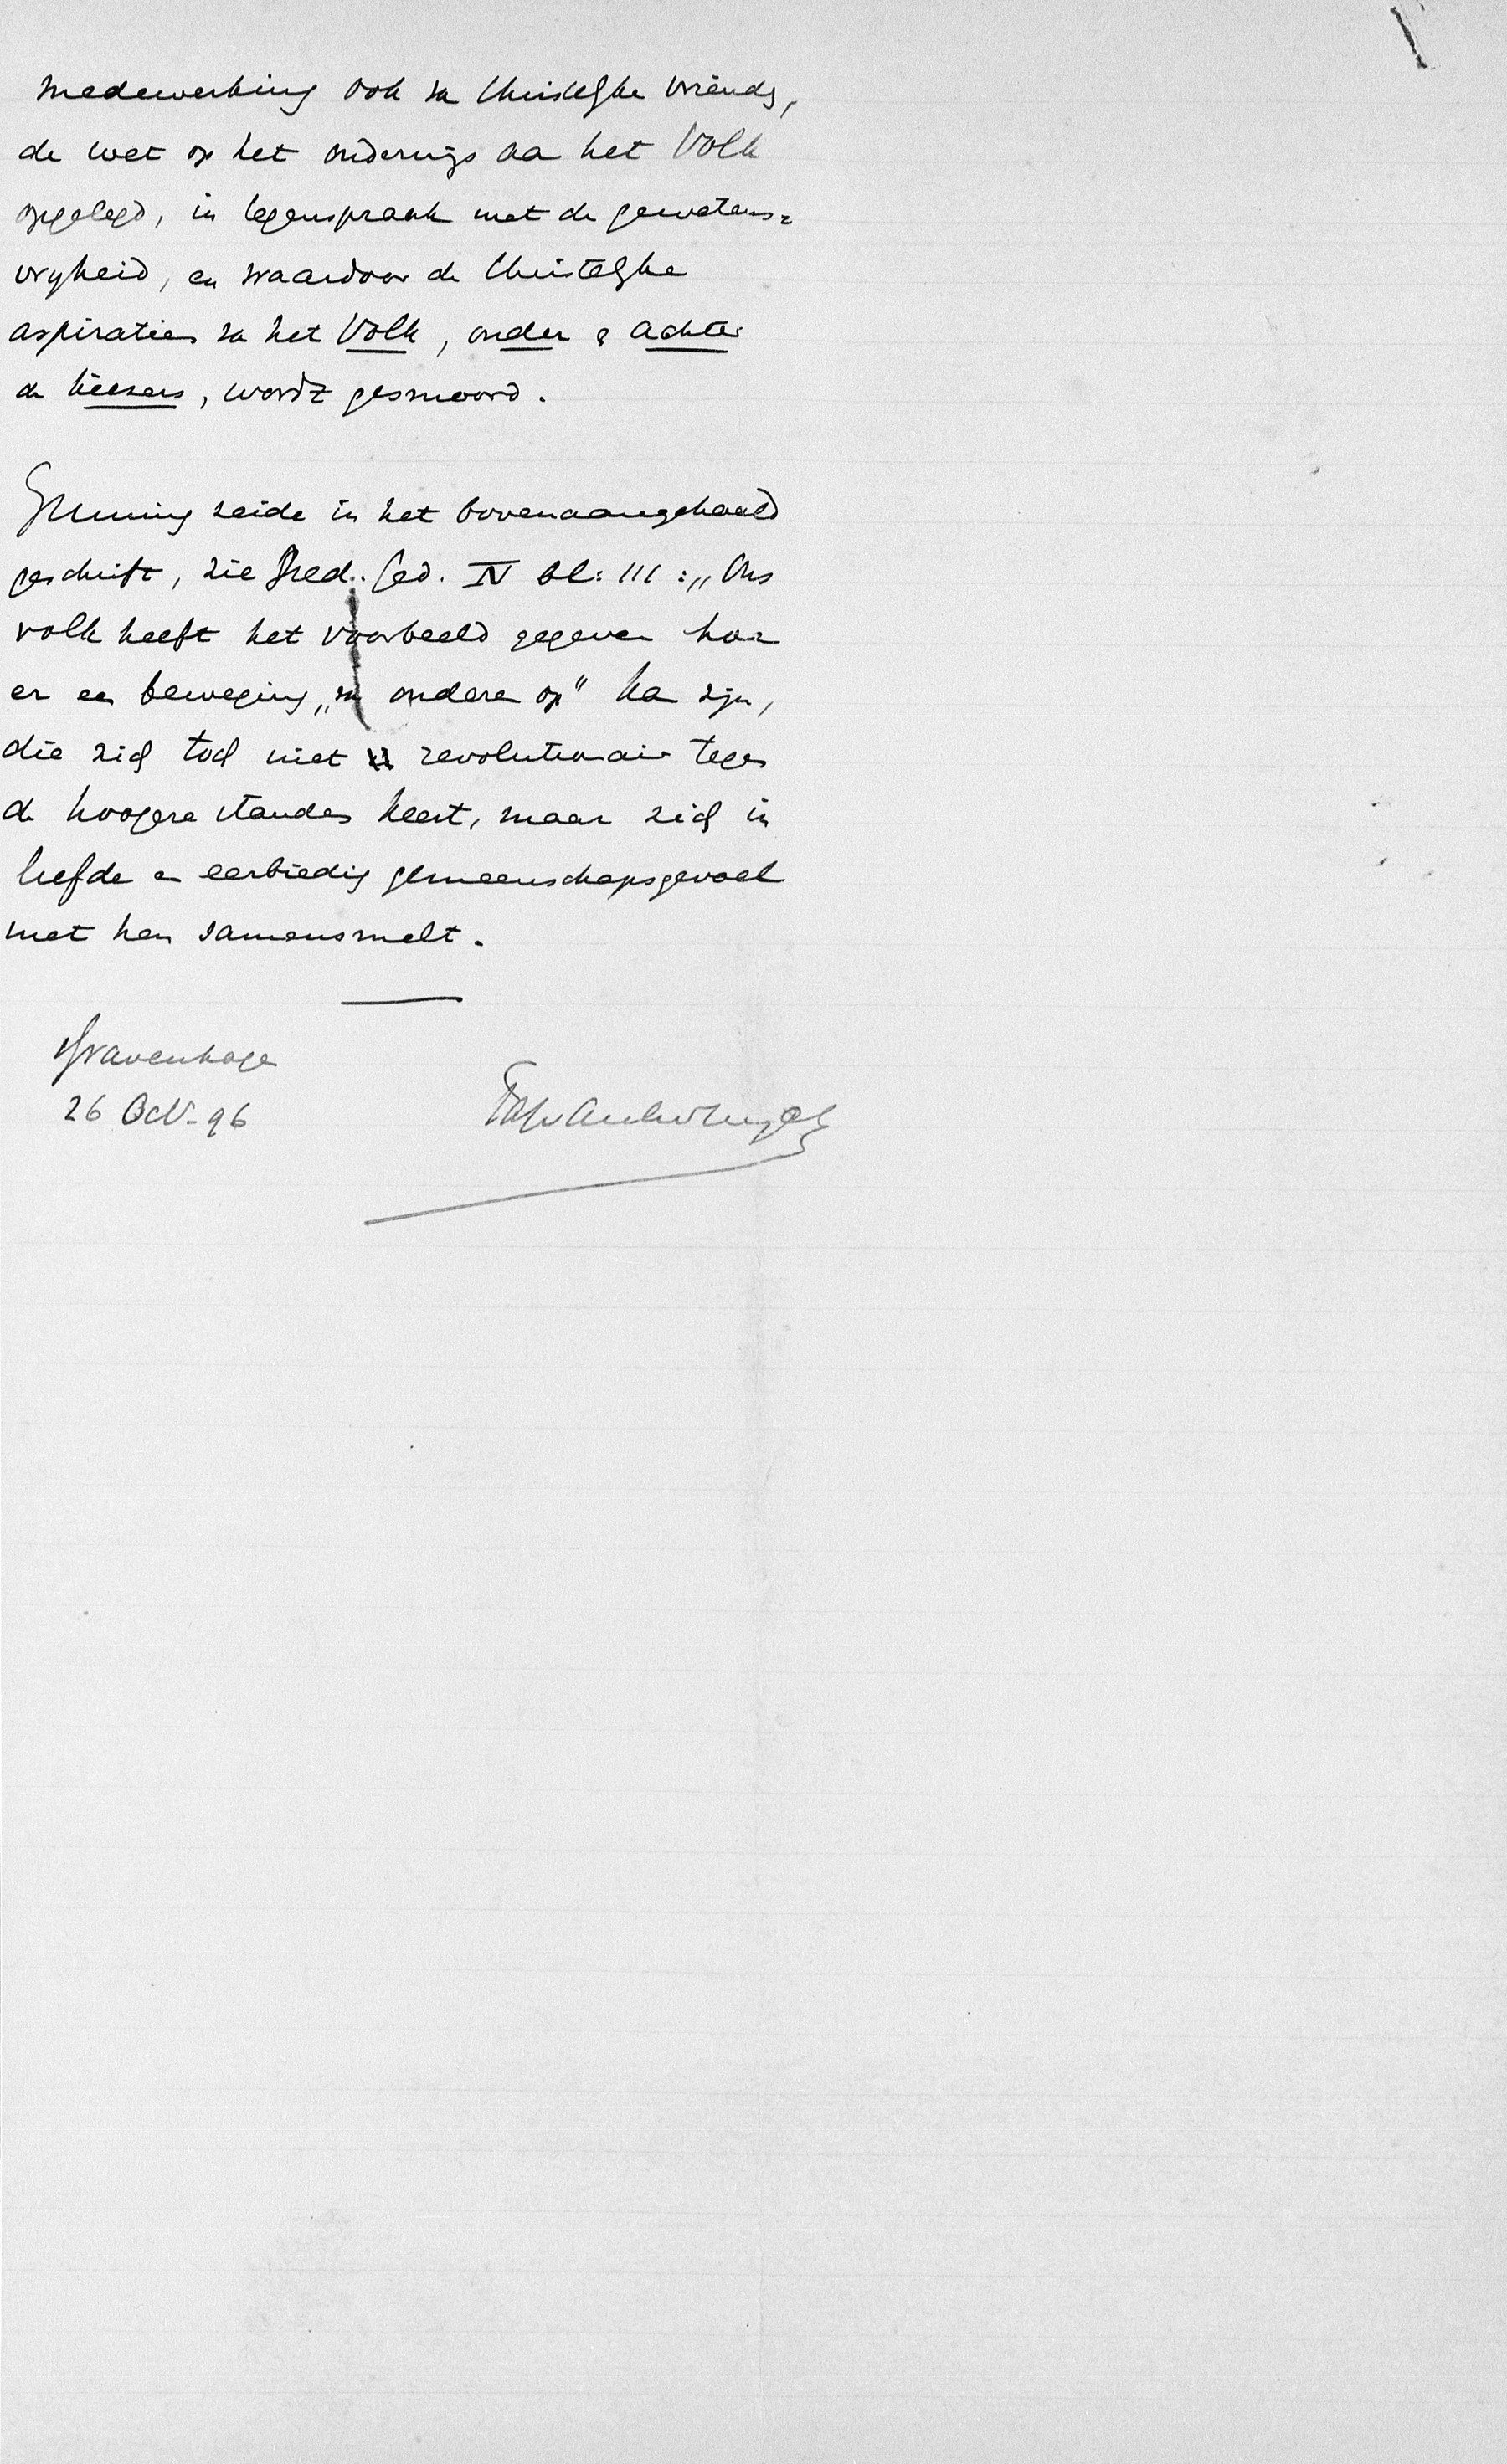 medewerking ook van Christelyke vrienden,
de wet op het onderwijs aan het Volk
opgelegd, in tegenspraak met de gewetens=
vryheid, en waardoor de Christelyke
aspiraties van het Volk, onder & achter
de kiezers, wordt gesmoord.
Gunning zeide in het bovenaangehaald
geschrift, zie Ned. Ged. IV bl: 111 : „Ons
volk heeft het voorbeeld gegeven hoe
er een beweging „van onderen op" kan zijn,
die zich toch niet revolutionair tegen
de hoogere standen keert, maar zich in
liefde en eerbiedig gemeenschapsgevoel
met hen samensmelt.
's Gravenhage
26 Oct. 96